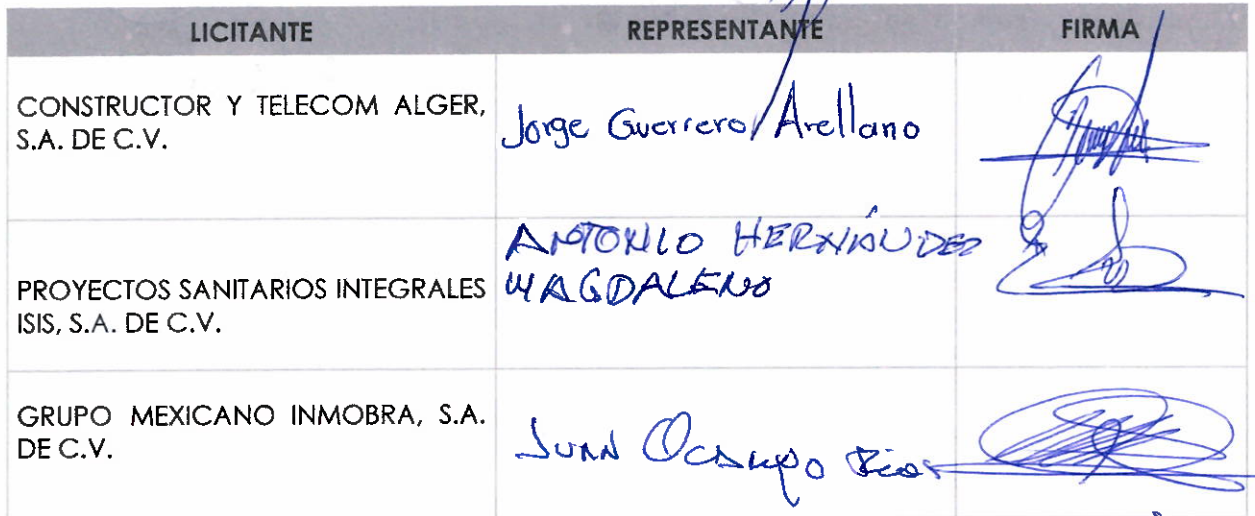 LICITANTE REPRESENTANTE FIRMA
CONSTRUCTOR Y TELECOM ALGER,
S.A. DE C.V.
Jorge Guerrero Arellano
PROYECTOS SANITARIOS INTEGRALES
ISIS, S.A. DE C.V.
ANTONIO HERNÁNDEZ
MAGDALENO
GRUPO MEXICANO INMOBRA, S.A.
DE C.V.
Juan Ocampo Rios